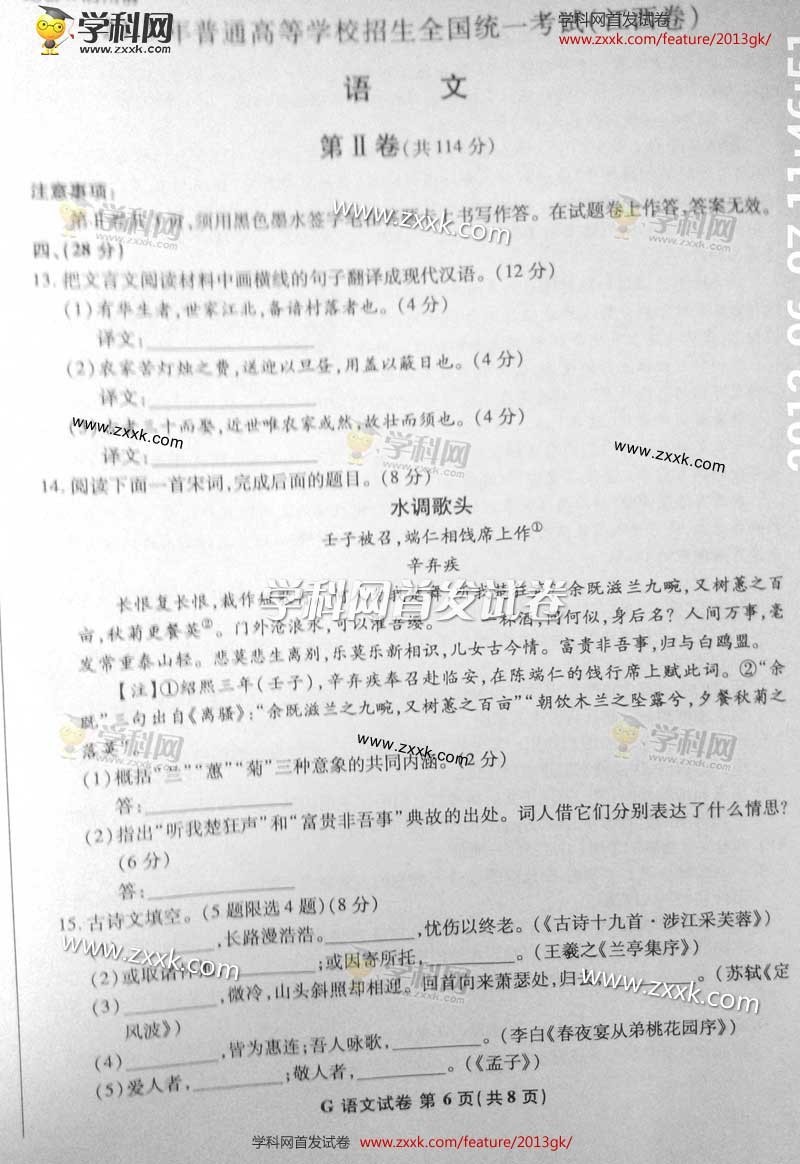 学科网
www.zxxk.com
学科网首发试卷
www.zxxk.com/feature/2013gk/
年普通高等学校招生全国统一考试(江西卷)
语 文
第Ⅱ卷(共114分)
注意事项:
第Ⅱ卷共 页,须用黑色墨水签字笔在答题卡上书写作答。在试题卷上作答,答案无效。
四、(28分)
13.把文言文阅读材料中画横线的句子翻译成现代汉语。(12分)
(1)有华生者,世家江北,备谙村落者也。(4分)
译文:
(2)农家苦灯烛之费,送迎以旦昼,用盖以蔽日也。(4分)
译文:
(3) 三十而娶,近世唯农家或然,故壮而须也。(4分)
译文:
14.阅读下面一首宋词,完成后面的题目。(8分)
水调歌头
壬子被召,端仁相饯席上作①
辛弃疾
长恨复长恨,裁作短 余既滋兰九畹,又树蕙之百
亩,秋菊更餐英②。门外沧浪水,可以濯吾缨。 一杯酒,问何似,身后名?人间万事,毫
发常重泰山轻。悲莫悲生离别,乐莫乐新相识,儿女古今情。富贵非吾事,归与白鸥盟。
【注】①绍熙三年(壬子),辛弃疾奉召赴临安,在陈端仁的饯行席上赋此词。②“余
既”三句出自《离骚》:“余既滋兰之九畹,又树蕙之百亩”“朝饮木兰之坠露兮,夕餐秋菊之
落英”
(1)概括“兰”“蕙”“菊”三种意象的共同内涵。(2分)
答:
(2)指出“听我楚狂声”和“富贵非吾事”典故的出处。词人借它们分别表达了什么情思?
(6分)
答:
15.古诗文填空。(5题限选4题)(8分)
,长路漫浩浩。 ,忧伤以终老。(《古诗十九首·涉江采芙蓉》)
(2)或取诸 ;或因寄所托, 。(王羲之《兰亭集序》)
(3) ,微冷,山头斜照却相迎。回首向来萧瑟处,归 。(苏轼《定
风波》)
(4) ,皆为惠连;吾人咏歌, 。(李白《春夜宴从弟桃花园序》)
(5)爱人者, ;敬人者, 。(《孟子》)
G 语文试卷 第6页(共8页)
学科网首发试卷 www.zxxk.com/feature/2013gk/